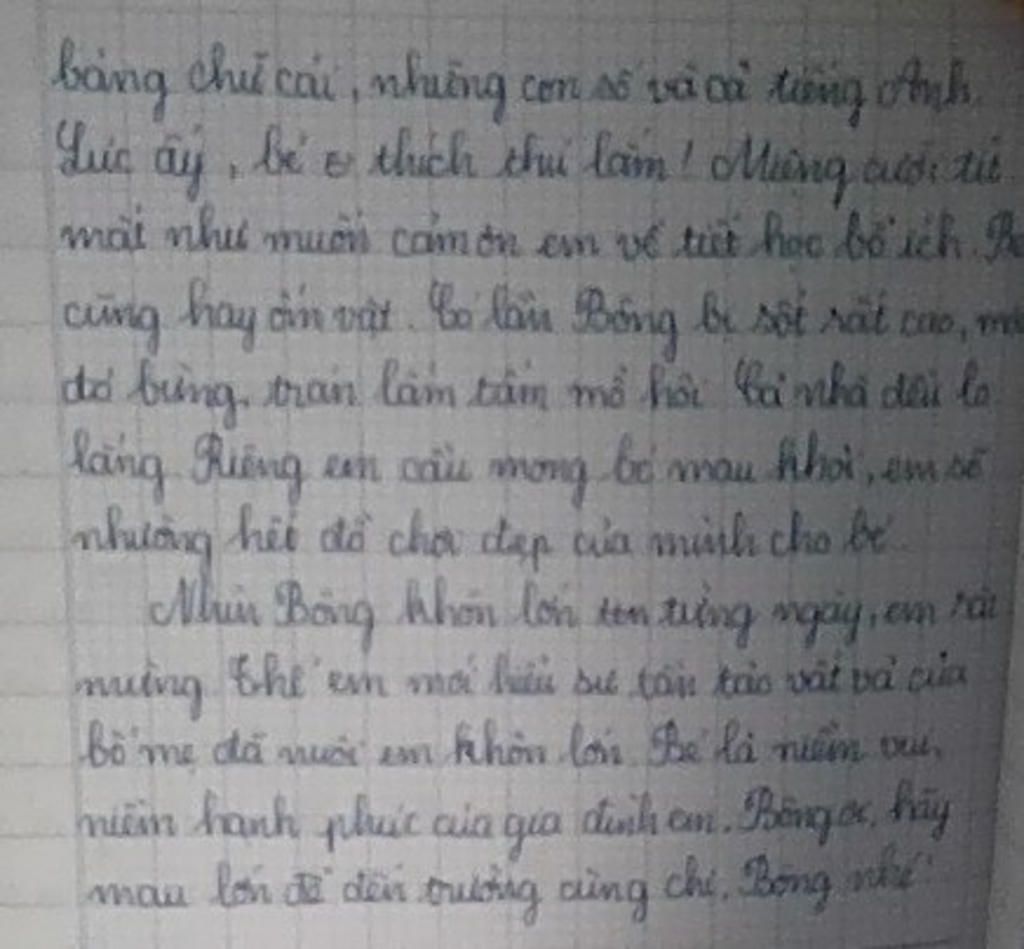 bảng chữ cái, những con số và cả tiếng Anh.
Lúc ấy, bé thích thú lắm! Miệng cười tít
mắt như muốn cảm ơn em về tiết học bổ ích. Bé
cũng hay ốm vặt. Có lần Bống bị sốt rất cao,
đỏ bừng, trán lấm tấm mồ hôi. Cả nhà đều lo
lắng. Riêng em cầu mong bé mau khỏi, em sẽ
nhường hết đồ chơi đẹp của mình cho bé.
Nhìn Bống khôn lớn lên từng ngày, em rất
mừng. Thế em mới hiểu sự tần tảo vất vả của
bố mẹ đã nuôi em khôn lớn. Bé là niềm vui,
niềm hạnh phúc của gia đình em. Bống ơi, hãy
mau lớn để đến trường cùng chị, Bống nhé